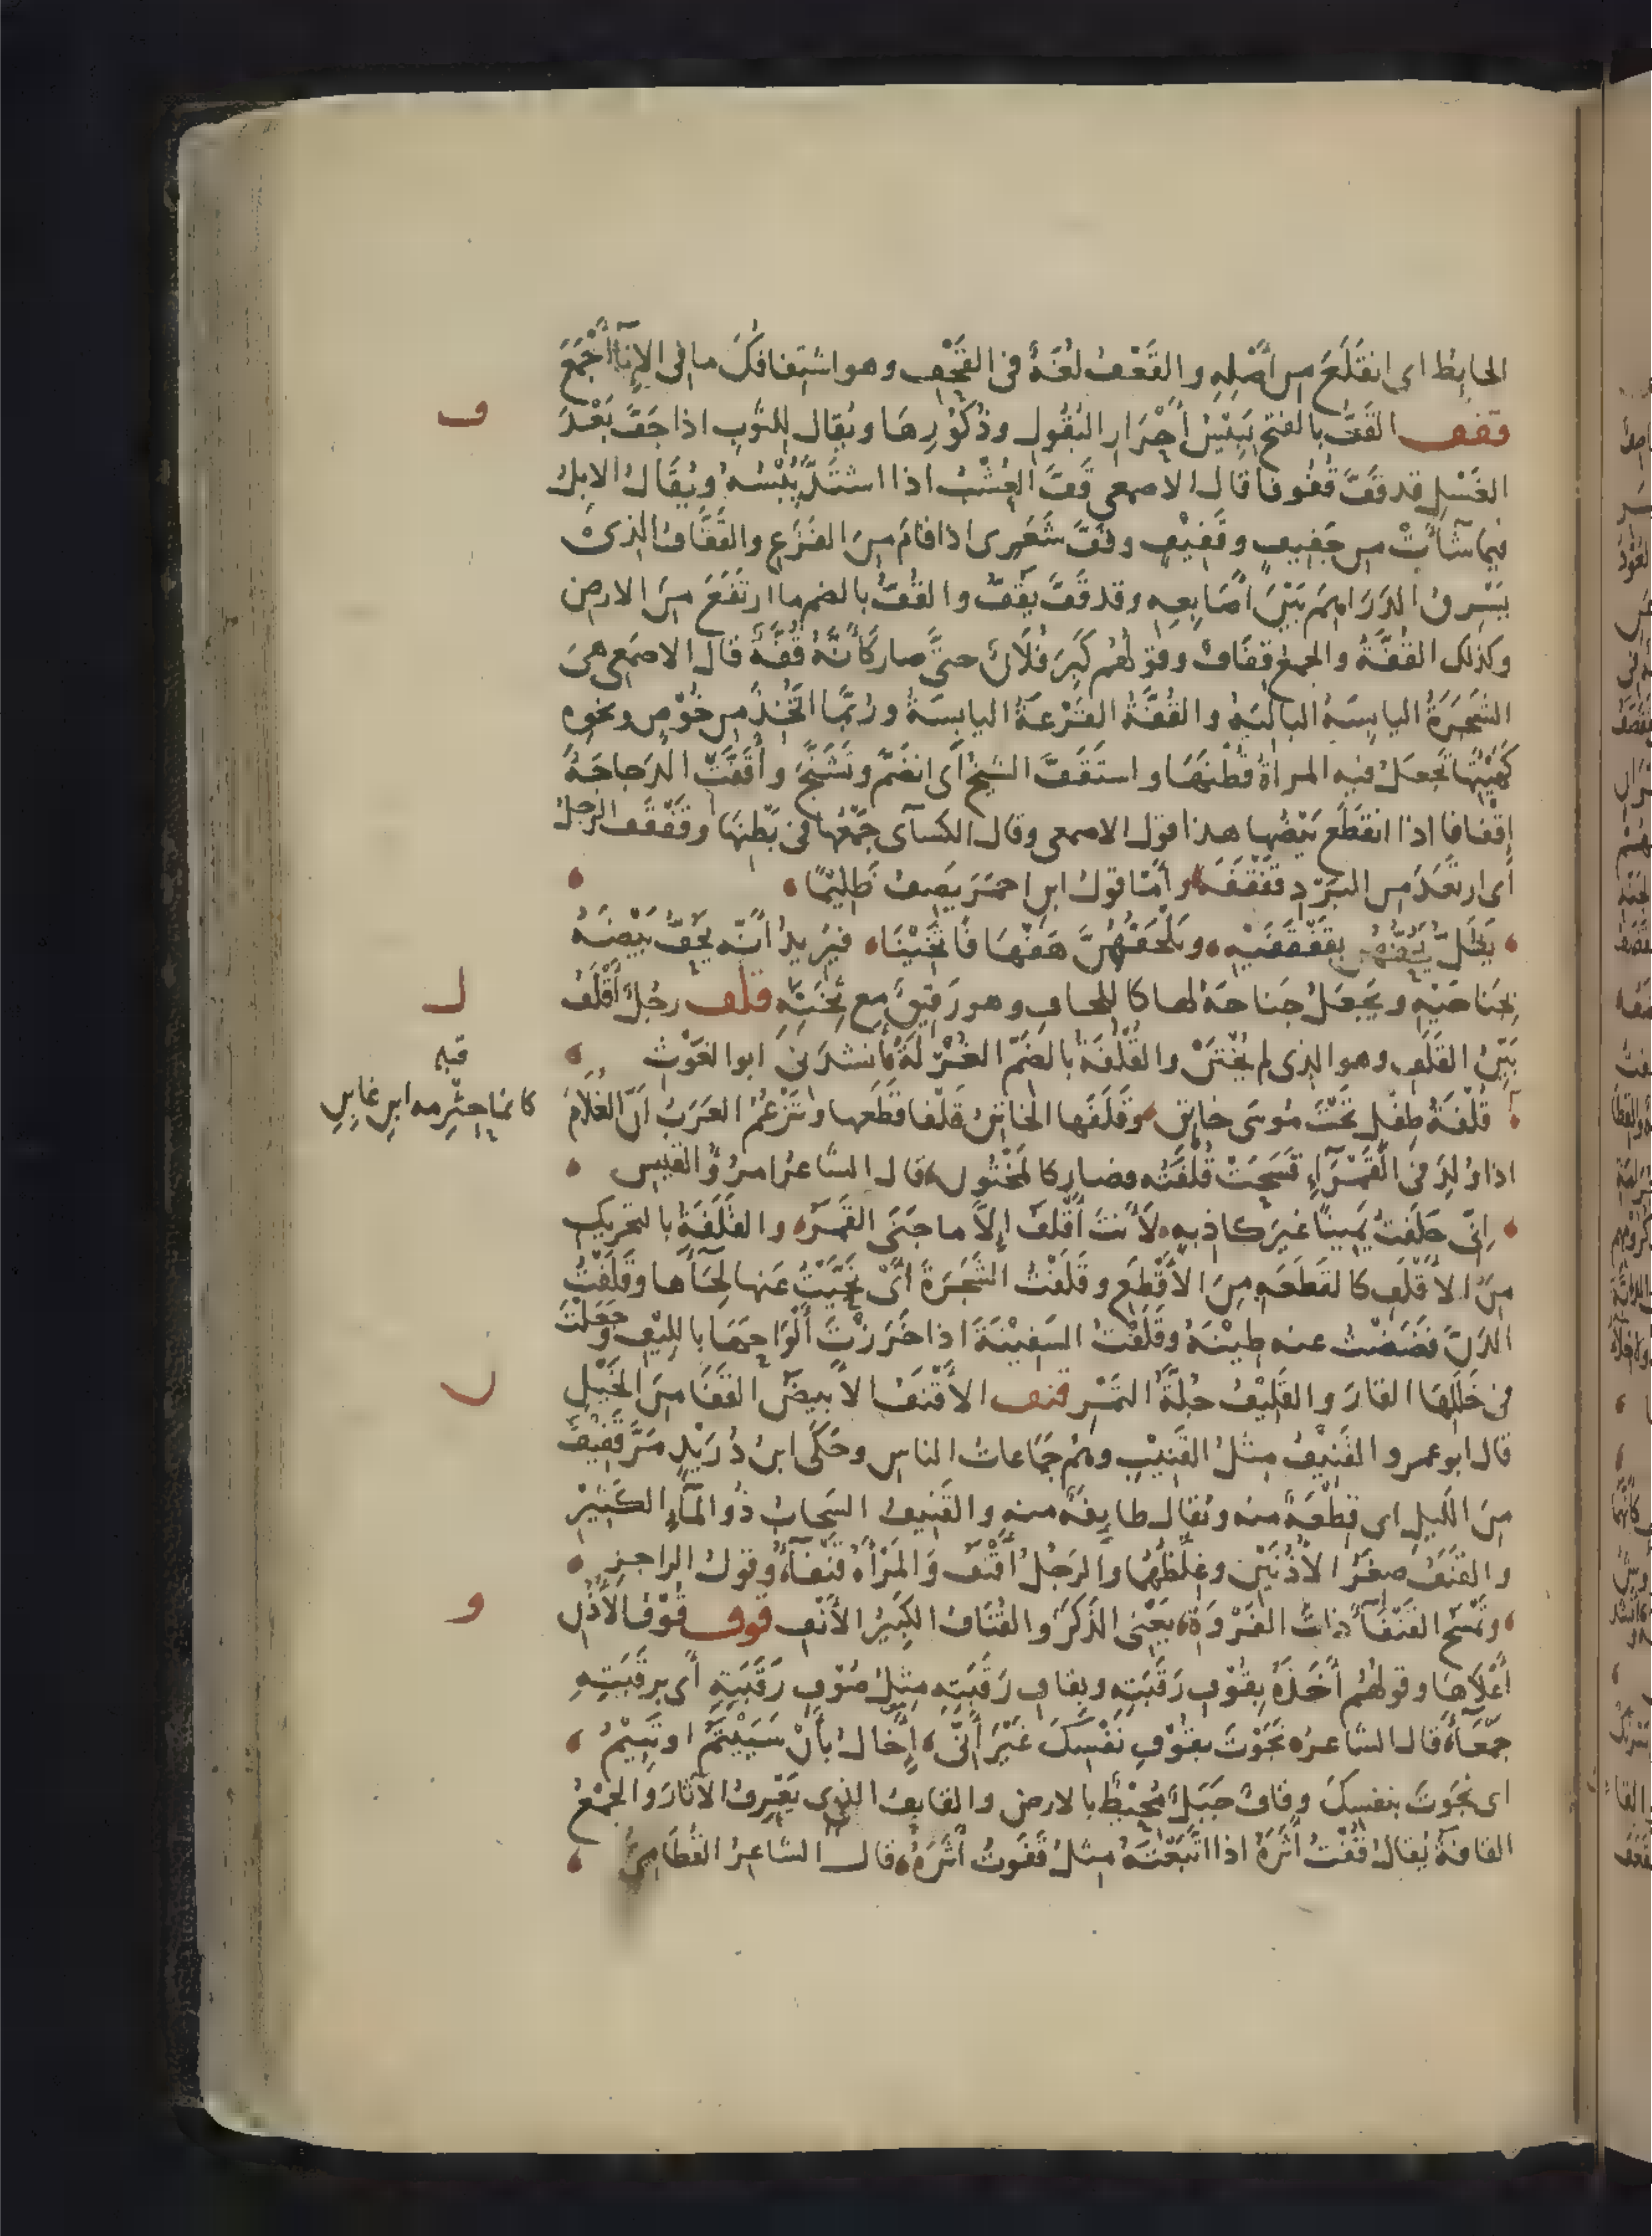 الحايِطُ اى انقَلَعَ من أَصْلِهِ والقَعْفُ لُغَةٌ فى القَحْفِ وهو اشتِفافك ما فى الإناءِ أَجْمَعَ
ف
قفف القَفُّ بالفتح يَبِيْسُ أَحْرَارِ البُقُولِ وذُكُوْرِهَا ويُقال للثَّوبِ اذا جَفَّ بَعْدَ
الغَسْلِ قد قَفَّ قُفُوفا قال الاصمعى قَفَّ العُشْبُ اذا اشتَدَّ يُبْسُهُ ويُقَالُ الابِلُ
فيما شآءَتْ من جَفِيفٍ وقَفِيْفٍ وقَفَّ شَعَرِى اذا قامَ مِنَ الفَزَعِ والقَفَّافُ الذى
يَسْرِقُ الدَرَاهِمَ بَيْنَ أَصَابِعِهِ وقد قَفَّ يَقُفُّ والقُفُّ بالضم ما ارتَفَعَ مِنَ الارضِ
وكذلك القُفَّةُ والجمعُ قِفَافٌ وقولُهُم كَبِرَ فُلَانٌ حتَّى صار كَأَنَّهُ قُفَّةٌ قال الاصمَعى هىَ
الشَّجَرَةُ اليابِسَةُ البالَيةُ والقُفَّةُ القَرْعَةُ اليابِسَةُ ورُبَّمَا اتُّخِذَ من خُوْصٍ ونحوِه
كَهَيْئَتِها تجعَلُ فيه المرأةُ قُطْنَهَا واستَقَفَّ الشيخُ أَى انضَمَّ وتَشَنَّجَ وأَقَفَّتْ الدَجاجَةُ
إِقْفافا اذا انقَطَعَ بَيْضُها هذا قول الاصمعى وقال الكسآئى جَمْعُها فى بَطْنِهَا وقَفْقَفَ الرجلُ
أَى ارتَعَدَ من البَرْدِ قَفْقَفَةً وأَمَّا قولُ ابنِ احمَرَ يَصِفُ ظَلِيْمًا
يَظَلُّ يَحُفُّهُنَّ بقَفْقَفَيْهِ ويَلْحَفُهُنَّ هَفْهَافًا ثَخِيْنَا فيُرِيدُ أَنَّه يَحُفُّ بَيْضَهُ
ل
بجَناحَيْهِ ويَجعَلُ جَناحَهُ لها كاللِحافِ وهو رَقِيقٌ مع ثِخَنِهِ قلف رجُلٌ أَقْلَفُ
بَيِّنُ القَلَفِ وهو الذى لم يُخْتَنْ والقُلْفَةُ بالضَمِّ الغُرْلَةُ أنشدَنى ابو الغَوْثِ
قبله
كانما حِثْرِمه ابنِ غابِنِ
قُلْفَةُ طِفْلٍ تَحْتَ مُوسَى خاتِنِ وقَلَفَها الخاتِنُ قَلْفا قَطَعها وتَزْعُمُ العَرَبُ اَنّ الغُلَامَ
اذا وُلِدَ فى القَمْرَآءِ فَسَحَتْ قُلْفَتُه فصار كالمَخْتُونِ قال الشاعرُ امرُؤُ القَيسِ
إنِّى حَلَفتُ يَمِينًا غيرَ كاذِبهٍ لَأَنتَ أَقْلَفُ إِلَّا ما جَنَى القَمَرُ والقَلَفَةُ بالتحريكِ
مِنَ الأَقْلَفِ كالقَطَعَهِ مِنَ الأَقْطَعِ وقَلَفْتُ الشَجَرَةَ أَىْ نَحَّيْتُ عَنها لِحَآءَهَا وقَلَفْتُ
الدَنَّ فَضَضْتُ عنه طِيْنَهُ وقَلَفْتُ السَفِيْنَةَ اذا خَرَزْتَ أَلْوَاحَهَا باللِيْفِ وجَعَلْتَ
ن
فى خَلَلِهَا القارَ والقَلِيْفُ جُلَّةُ التَمْرِ قنف الأَقْنَفُ الأَبيضُ القَفَا مِنَ الخَيْلِ
قال ابو عمرو القَنِيْفُ مِثلُ القَنِيْبِ وهُم جَمَاعاتُ الناسِ وحَكَى ابنُ دُرَيْدٍ مَرَّ قَنِيْفٌ
مِنَ اللَيلِ اى قِطْعَةٌ منه ويُقال طايِفةٌ منه والقَنِيفُ السَحابُ ذُو المآءِ الكَثِيْرِ
والقَنَفُ صِغَرُ الأُذُنَيْنِ وغِلَظُهُمَا والرَجُلُ أَقْنَفُ وَالمَرْأَةُ قَنْفآءُ وقولُ الراجزِ
و
وتَمْسَحُ القَنْفَآءَ ذاتَ الفَرْوَةِ يَعْنِى الذَكَرَ والقُنَافُ الكَبِيرُ الأَنْفِ قوف قُوْفُ الأُذُنِ
أَعْلَاهَا وقولُهُم أَخَذَهُ بِقُوْفِ رَقَبَتِهِ وبِقافِ رَقَبَتِهِ مِثلُ صُوْفِ رَقَبَتِهِ أَى برَقَبَتِهِ
جَمْعَآءَ قال الشاعرُ نَجَوْتَ بقُوْفِ نَفْسِكَ غَيْرَ أَنِّى إِخَالُ بأَنْ سَيَيْتَمُ او تَئِيْمُ
اى نَجَوتَ بنفسِكَ وقافٌ جَبَلٌ مُحِيْطٌ بالارضِ والقايِفُ الذى يَعْرِفُ الآثارَ والجَمْعُ
القافةُ يُقالُ قُفْتُ أَثَرَهُ اذا اتَّبَعْتَهُ مِثلُ قَفَوتُ أَثَرَهُ قال الشاعِرُ القُطَامِىُّ